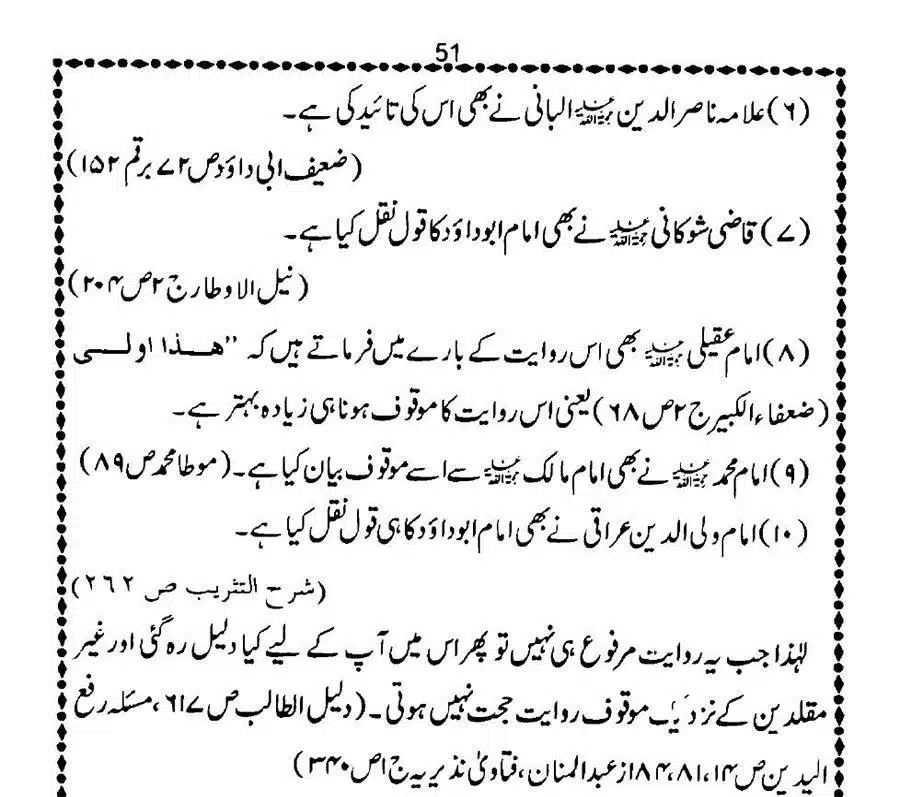 51
(۶) علامہ ناصر الدین رحمۃ اللہ علیہ البانی نے بھی اس کی تائید کی ہے۔
(ضعیف ابی داؤد ص ۷۲ برقم ۱۵۲)
(۷) قاضی شوکانی رحمۃ اللہ علیہ نے بھی امام ابوداؤد کا قول نقل کیا ہے۔
(نیل الاوطار ج ۲ ص ۲۰۴)
(۸) امام عقیلی رحمۃ اللہ علیہ بھی اس روایت کے بارے میں فرماتے ہیں کہ "ھذا اولی
(ضعفاء الکبیر ج ۲ ص ۶۸) یعنی اس روایت کا موقوف ہونا ہی زیادہ بہتر ہے۔
(۹) امام محمد رحمۃ اللہ علیہ نے بھی امام مالک رحمۃ اللہ علیہ سے اسے موقوف بیان کیا ہے۔ (موطا محمد ص ۸۹)
(۱۰) امام ولی الدین عراقی نے بھی امام ابوداؤد کا ہی قول نقل کیا ہے۔
(شرح التثریب ص ۲۶۲)
لہٰذا جب یہ روایت مرفوع ہی نہیں تو پھر اس میں آپ کے لیے کیا دلیل رہ گئی اور غیر
مقلدین کے نزدیک موقوف روایت حجت نہیں ہوتی۔ (دلیل الطالب ص ۶۱۷، مسئلہ رفع
الیدین ص ۱۴، ۸۱، ۸۴ از عبدالمنان، فتاویٰ نذیریہ ج ۱ ص ۳۴۰)